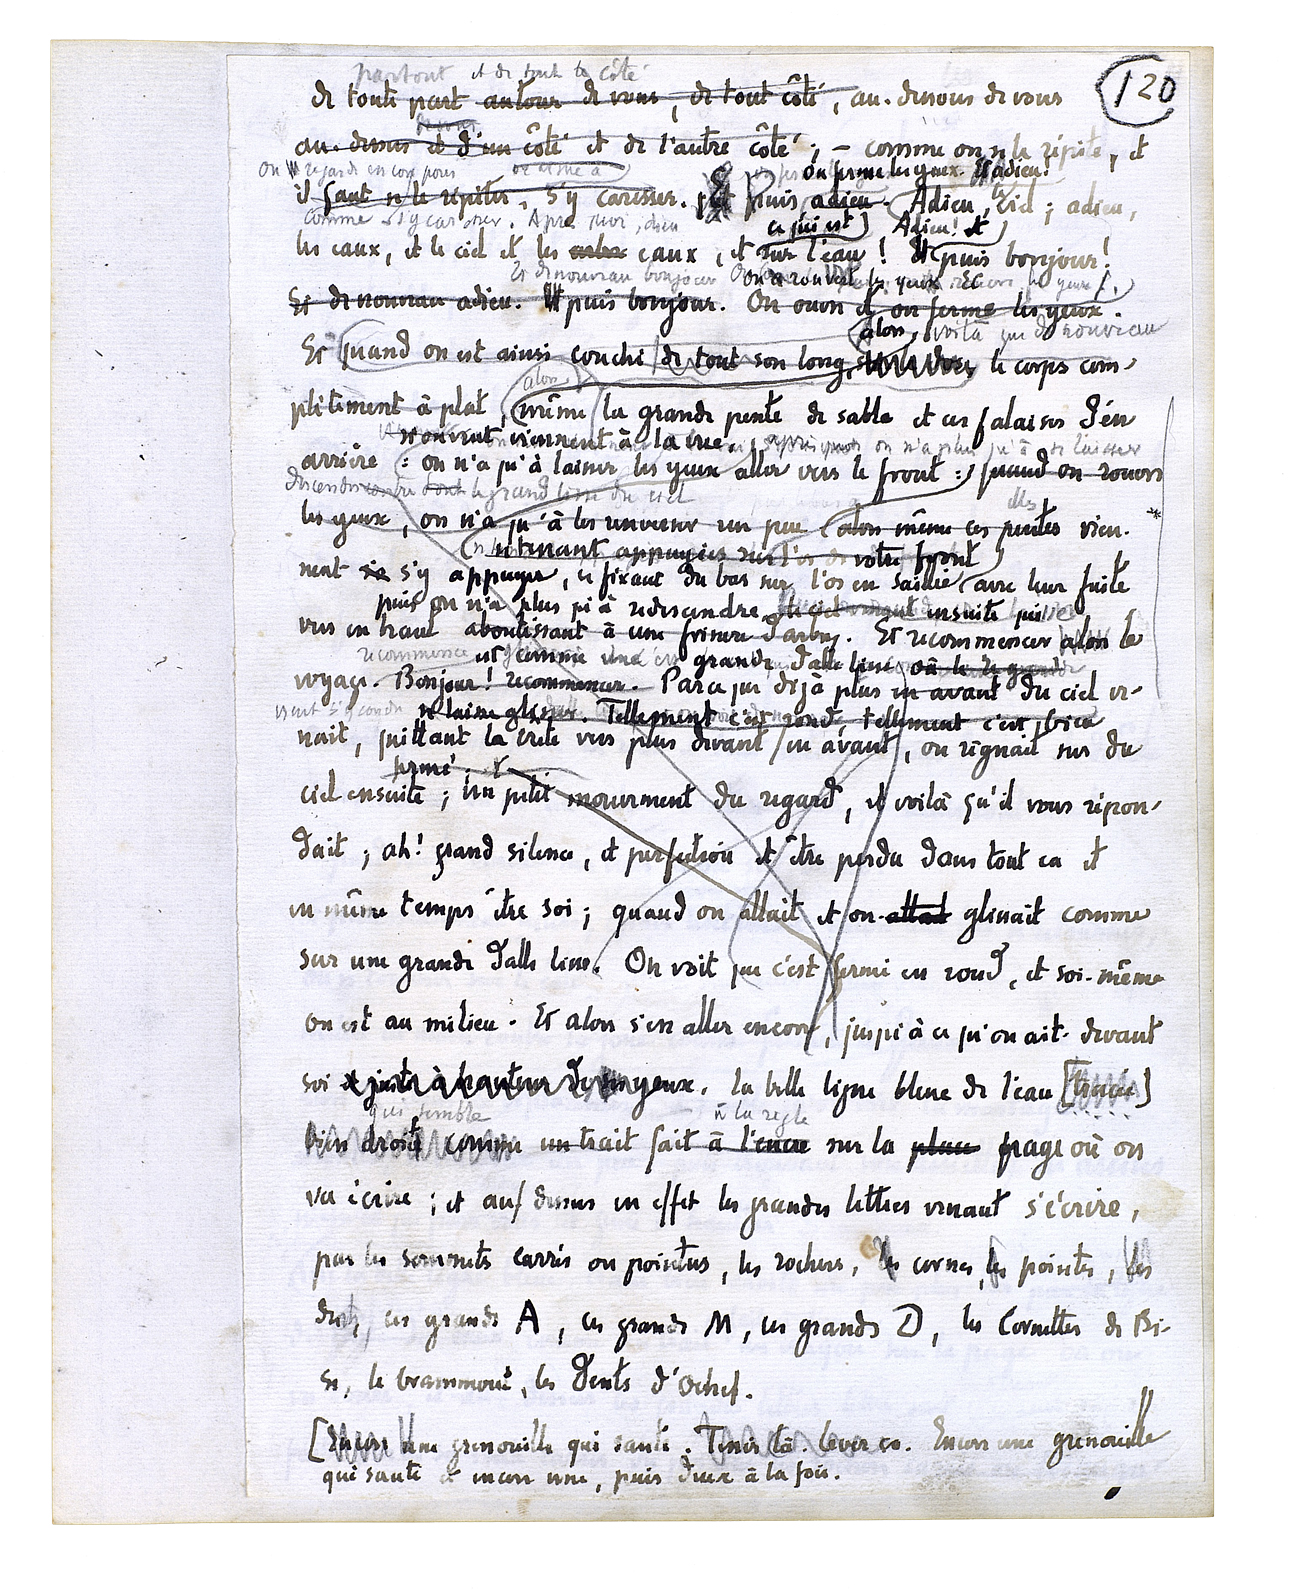 120
partout et de tout côté
de toute part autour de vous, de tout côté, au-dessous de vous
au-dessus et d'un côté et de l'autre côté ; – comme on se le répète, et
On regarde encore pour
on ferme les yeux. adieu!
il faut se le répéter, s'y caresser. puis adieu. Adieu, ciel ; adieu,
comme s'y caresser. Après quoi, adieu
ce qui est Adieu! et
les eaux, et le ciel et les eaux, et sur l'eau ! Et puis bonjour!
Et de nouveau bonjour on a rouvert les yeux
Et de nouveau adieu. puis bonjour. On ouvre et on ferme les yeux.
alors, voilà que de nouveau
Et quand on est ainsi couché de tout son long, le corps com-
alors
plètement à plat, même la grande pente de sable et ces falaises d'en
viennent à la vue. après quoi on n'a plus qu'à se laisser
arrière : on n'a qu'à laisser les yeux aller vers le front : quand on rouvre
descendre le grand lisse du ciel
elles
les yeux, on n'a qu'à les renverser un peu alors même ces pentes vien-
maintenant appuyées sur l'os de votre front
nent s'y appuyer, se fixant du bas sur l'os en saillie avec leur fuite
puis on n'a plus qu'à redescendre le ciel ensuite
vers en haut aboutissant à une frisure d'arbres. Et recommencer alors le
recommence est comme une grande dalle lisse où le regard
voyage. Bonjour! recommencer. Parce que déjà plus en avant du ciel ve-
se laisse glisser. Tellement c'est rond, tellement c'est bien
nait, quittant la crête vers plus devant en avant, on régnait sur du
fermé.
ciel ensuite ; Un petit mouvement du regard, et voilà qu'il vous répon-
dait ; ah! grand silence, et perfection et être perdu dans tout ça et
en même temps être soi ; quand on allait et on glissait comme
sur une grande dalle lisse. On voit que c'est fermé en rond, et soi-même
on est au milieu. Et alors s'en aller encore, jusqu'à ce qu'on ait devant
soi juste à hauteur des yeux, la belle ligne bleue de l'eau [tirée]
qui semble à la règle
bien droit comme un trait fait à l'encre sur la place page où on
va écrire ; et au/dessus en effet les grandes lettres venant s'écrire,
par les sommets carrés ou pointus, les rochers, les cornes, les pointes, les
dents, ces grands A, ces grands M, ces grands D, les Cornettes de Bi-
se, le Grammont, les Dents d'Oche.
[Encore une grenouille qui saute. Tenir là. lever ça. Encore une grenouille
qui saute et encore une, puis deux à la fois.